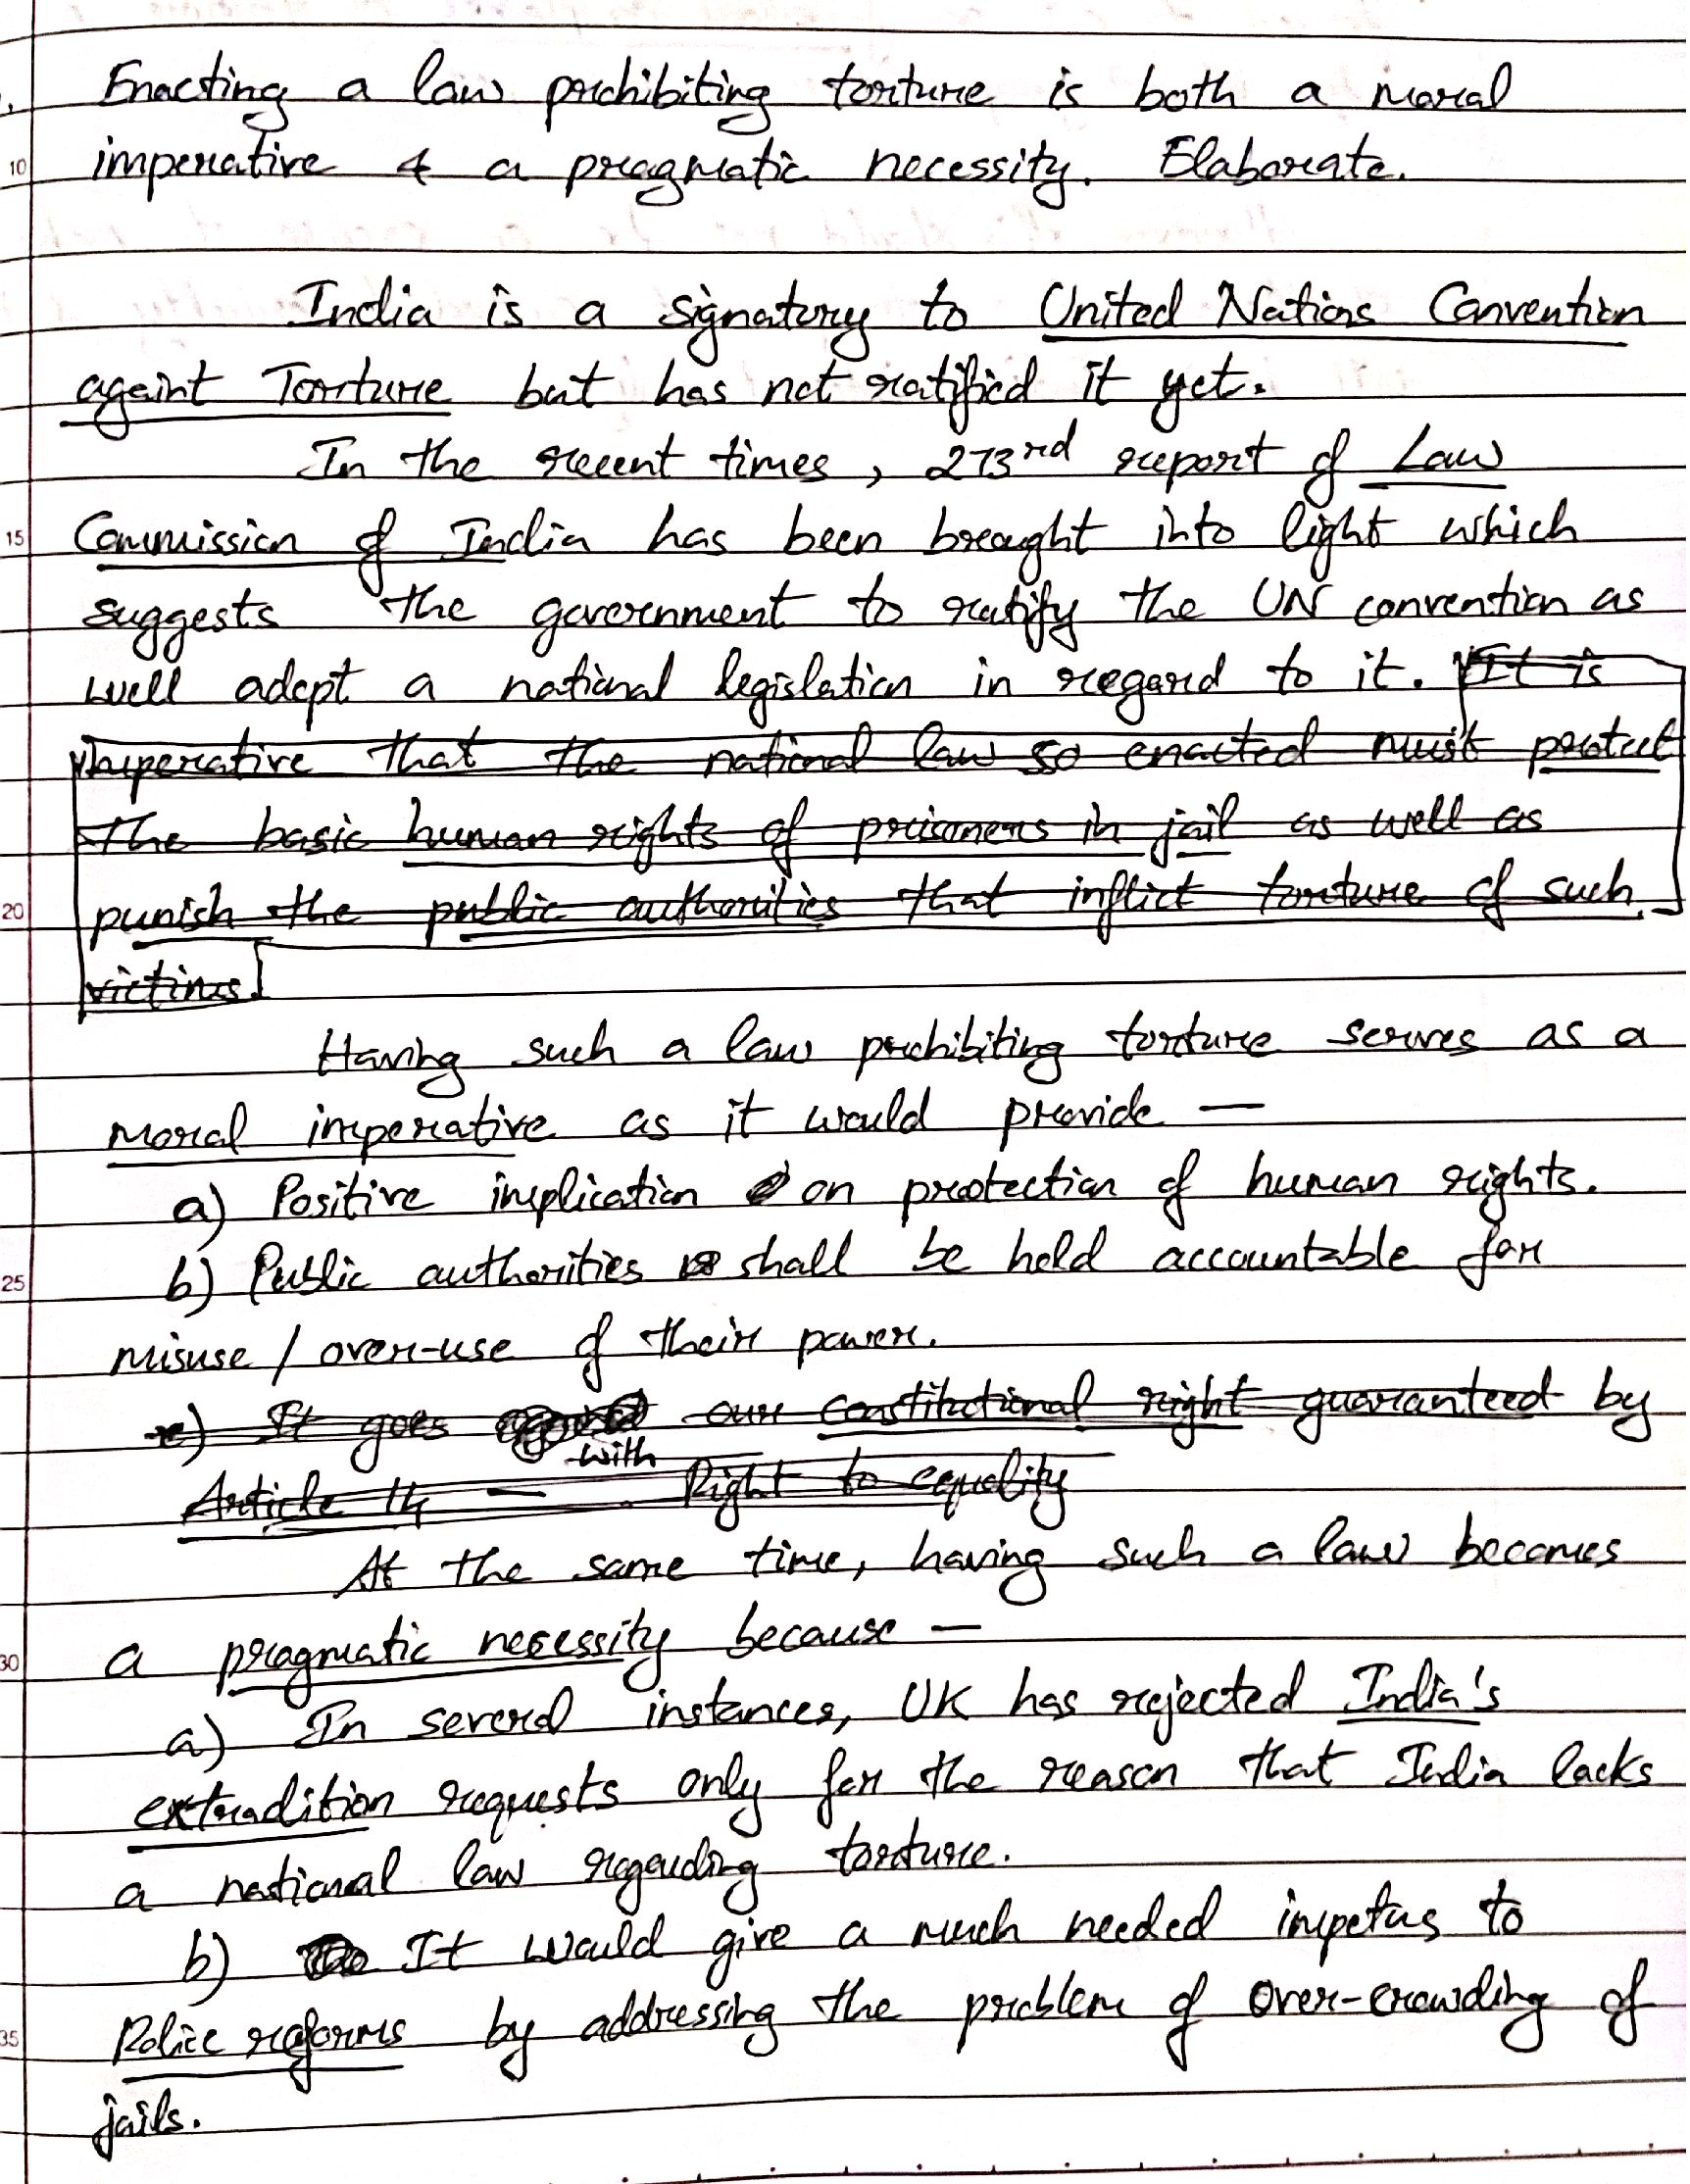 Enacting a law prohibiting torture is both a moral
10 imperative & a pragmatic necessity. Elaborate.
India is a signatory to United Nations Convention
againt Torture but has not ratified it yet.
In the recent times, 273rd report of Law
15 Commission of India has been brought into light which
suggests the government to ratify the UN convention as
well adopt a national legislation in regard to it. It is
imperative that the national law so enacted must protect
the basic human rights of prisoners in jail as well as
20 punish the public authorities that inflict torture of such
victims.
Having such a law prohibiting torture serves as a
moral imperative as it would provide —
a) Positive implication on protection of human rights.
25 b) Public authorities shall be held accountable for
misuse / over-use of their power.
c) It goes with our constitutional right guaranteed by
Article 14 — Right to equality
At the same time, having such a law becomes
30 a pragmatic necessity because —
a) In several instances, UK has rejected India's
extradition requests only for the reason that India lacks
a national law regarding torture.
b) It would give a much needed impetus to
35 Police reforms by addressing the problem of over-crowding of
jails.